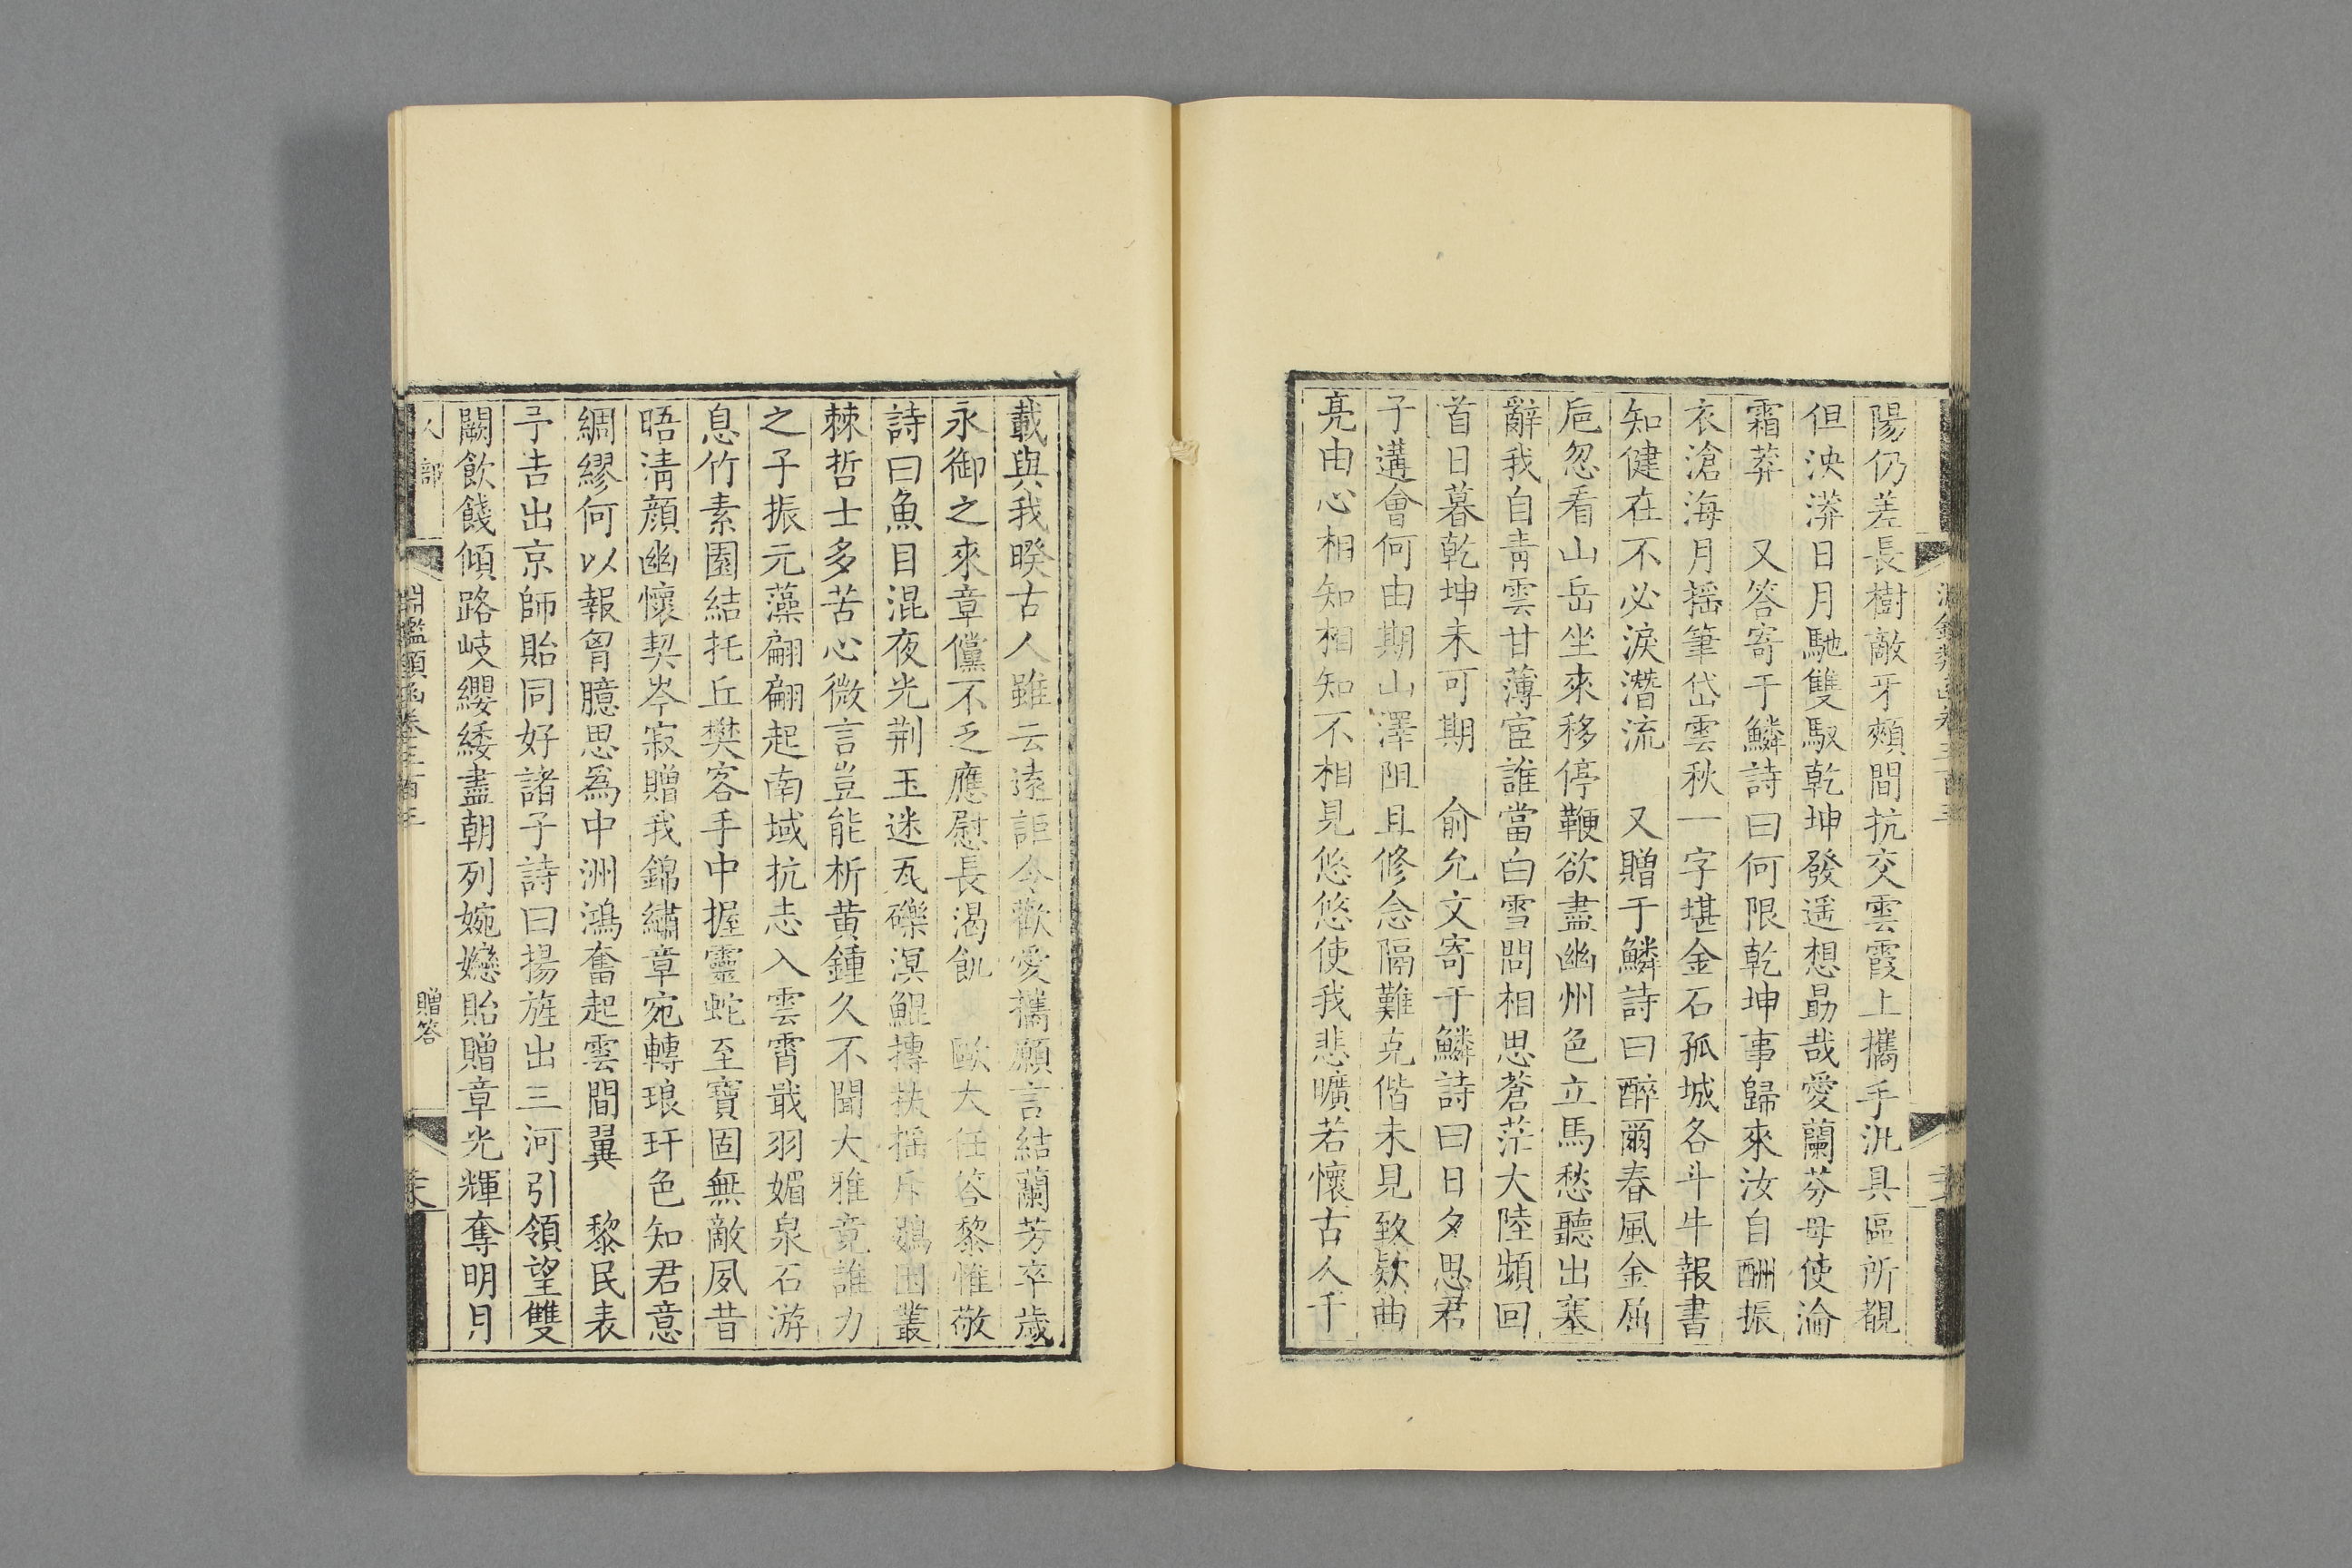 陽仍差長樹敵牙頰間抗交雲霞上攜手沘具區所覩
但泱漭日月馳雙馭乾坤發遥想勗哉愛蘭芬毋使淪
霜莽　又答寄于鱗詩曰何限乾坤事歸來汝自酬振
衣滄海月揺筆岱雲秋一字堪金石孤城各斗牛報書
知健在不必淚潛流　又贈于鱗詩曰醉爾春風金屈
巵忽看山岳坐來移停鞭欲盡幽州色立馬愁聽出塞
辭我自青雲甘薄宦誰當白雪問相思蒼茫大陸頻回
首日暮乾坤未可期　俞允文寄于鱗詩曰日夕思君
子遘會何由期山澤阻且修念隔難克偕未見致欵曲
亮由心相知相知不相見悠悠使我悲曠若懷古人千
載與我暌古人雖云遠詎今歡愛攜願言結蘭芳卒歲
永御之來章儻不乏應慰長渴飢　歐大任答黎惟敬
詩曰魚目混夜光荆玉迷瓦礫溟鯤摶扶揺斥鷃困叢
棘哲士多苦心微言豈能析黄鍾久不聞大雅竟誰力
之子振元藻翩翩起南域抗志入雲霄戢羽媚泉石游
息竹素園結托丘樊客手中握靈蛇至寶固無敵夙昔
晤清顔幽懷契岑寂贈我錦繡章宛轉琅玕色知君意
綢繆何以報胷臆思爲中洲鴻奮起雲間翼　黎民表
予告出京師貽同好諸子詩曰揚旌出三河引領望雙
闕飲餞傾路岐纓緌盡朝列婉戀貽贈章光輝奪明月
人部
淵鑑類函卷三百三
贈答